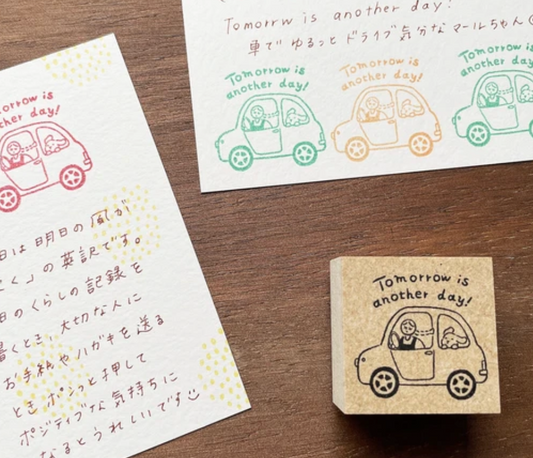 Tomorrw is another day!
車で ゆるっと ドライブ気分な マールちゃん
Tomorrow is
another day!
Tomorrow is
another day!
Tomorrow is
another day!
omorrow is
other day!
日は 明日の 風が
く」の 英訳です。
日のくらしの 記録を
書くとき、大切な人に
お手紙やハガキを送る
とき ポンっと押して
ポジティブな気持ちに
なるとうれしいです
Tomorrow is
another day!